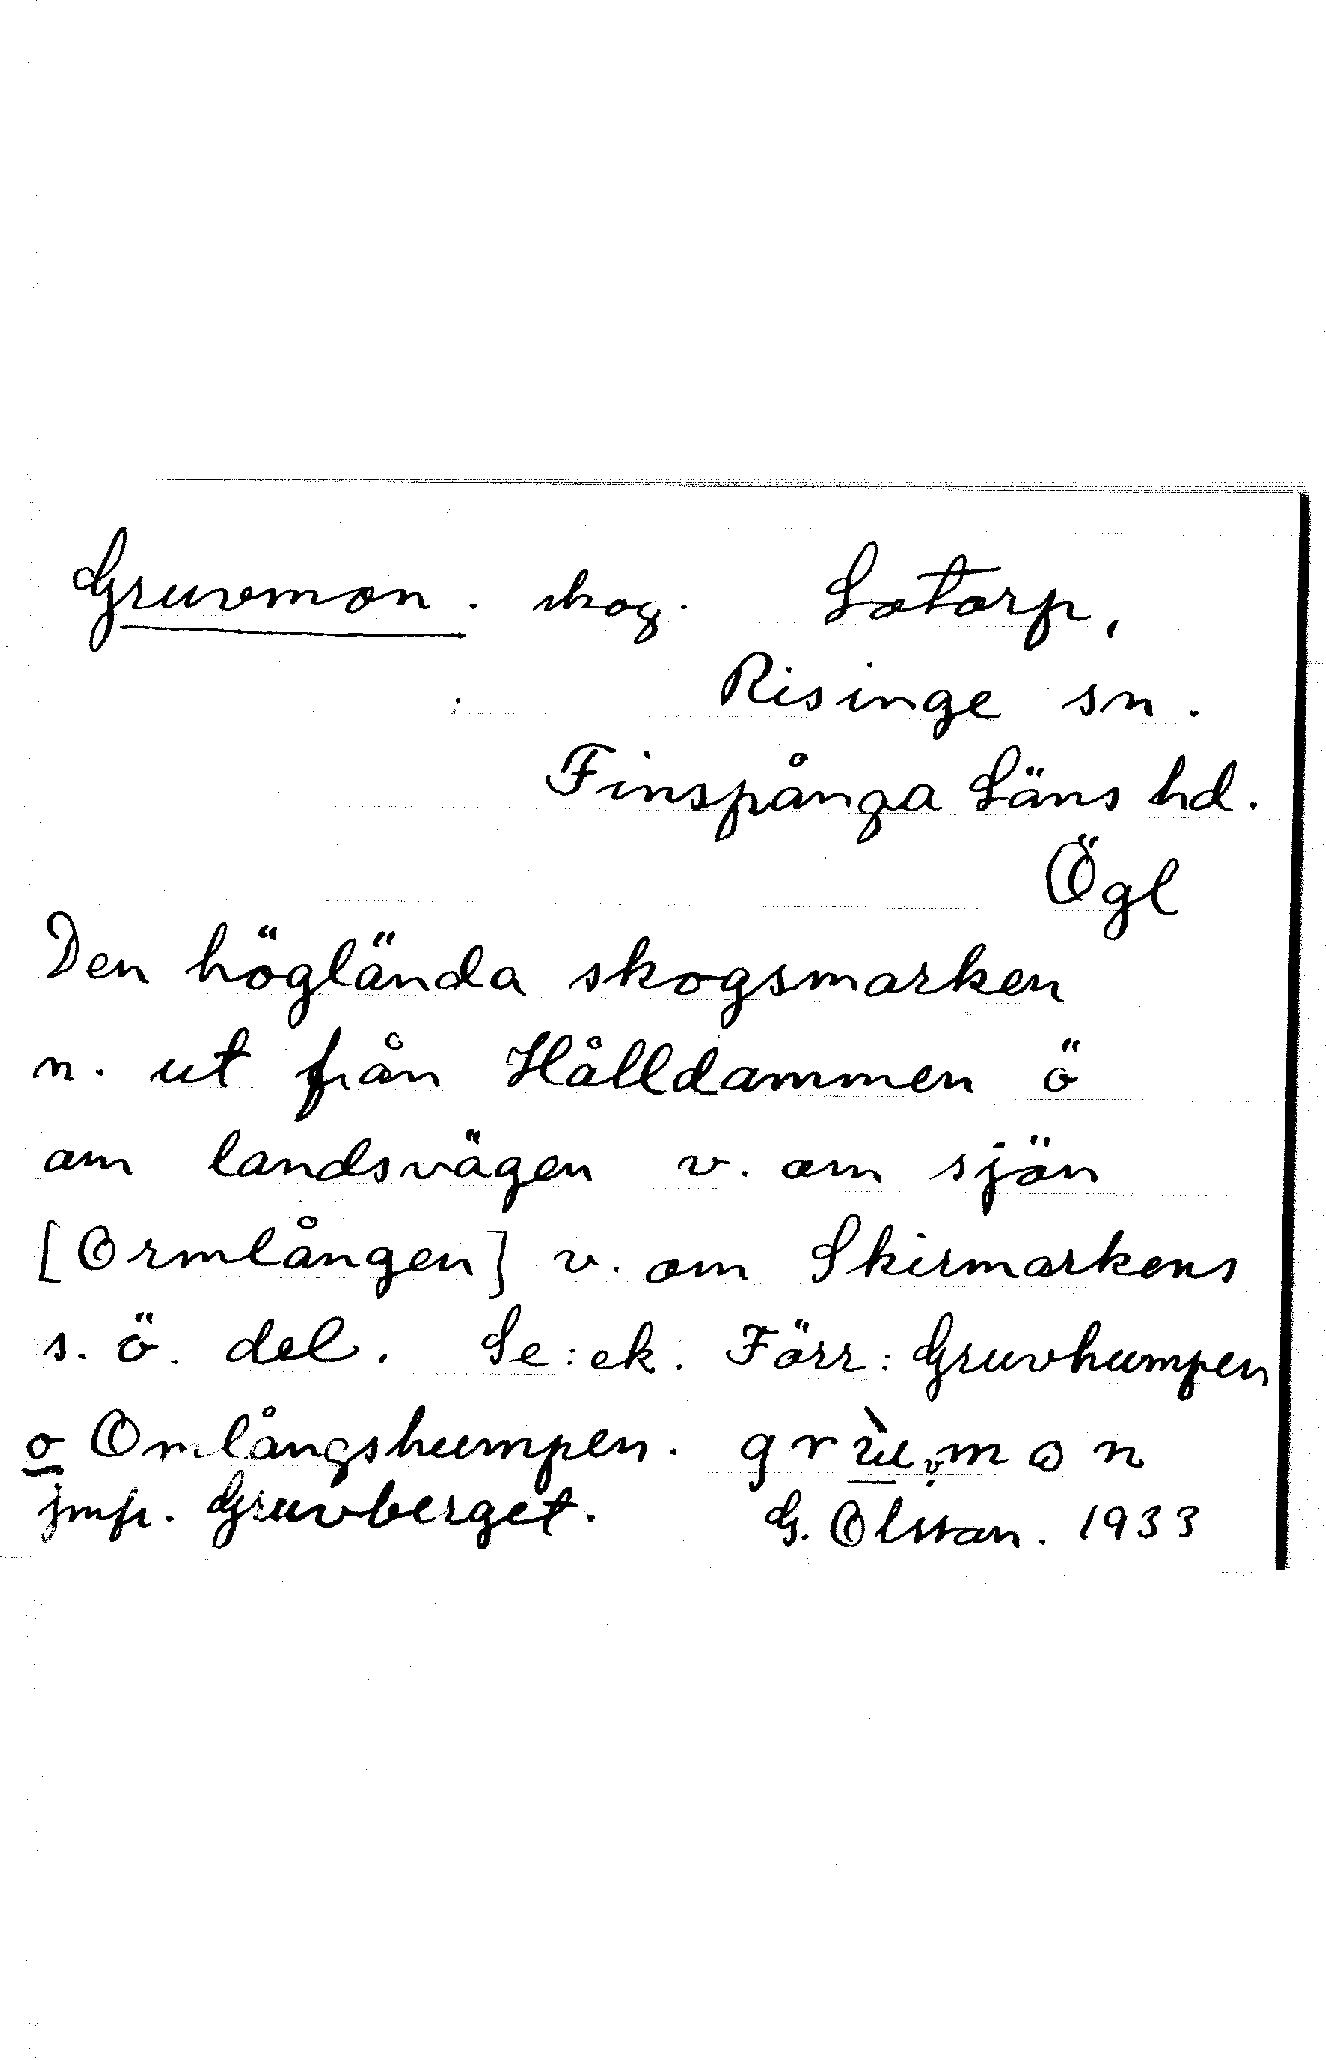 Gruvmon. skog. Lotorp,
Risinge sn.
Finspånga Läns hd.
Ögl
Den höglända skogsmarken
n. ut från Hålldammen ö
om landsvägen v. om sjön
[Ormlången] v. om Skirmarkens
s. ö. del. Se: ek. Förr: Gruvhumpen
o Ormlångshumpen. grùvmon
jmfr. Gruvberget. G. Olsson. 1933